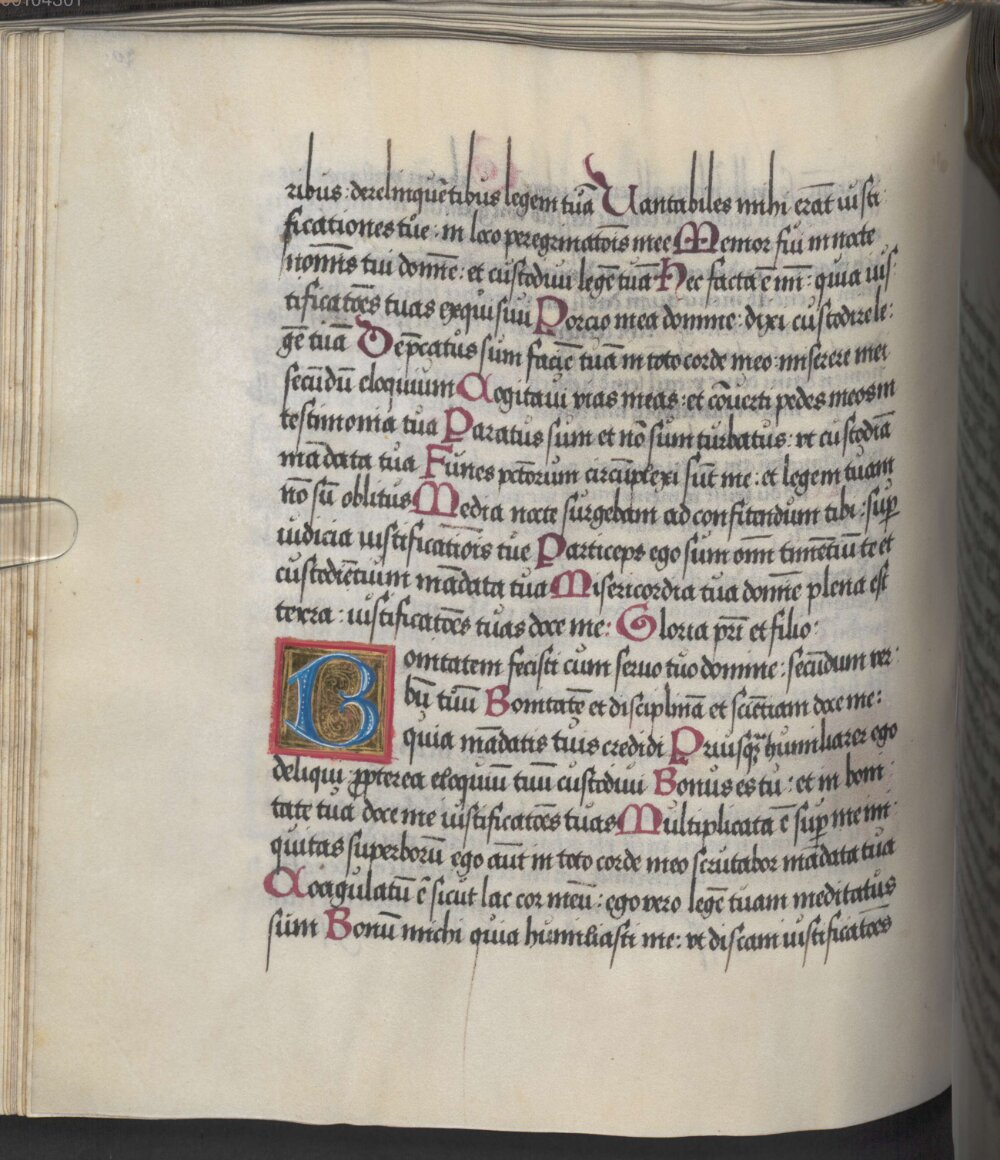 ribus : derelinquētibus legem tuā Cantabiles mihi erāt iusti
ficationes tue : in loco peregrinatōis mee Memor fui in nocte
nominis tui domine : et custodiui legē tuā Hec facta ē mī : quia ius
tificatōes tuas exquisiui Porcio mea domine : dixi custodire le :
gē tuā Dep̄catus sum faciē tuā in toto corde meo : miserere mei
secūdū eloquium Cogitaui vias meas : et cōuerti pedes meos in
testimonia tua Paratus sum et nō sum turbatus : vt custodiā
mādata tua Funes pctōrum circūplexi sūt me : et legem tuam
nō sū oblitus Media nocte surgebam ad confitendum tibi : sup̄
iudicia iustificatiōis tue Particeps ego sum omī timētiū te et
custodiētium mādata tua Misericordia tua domīe plena est
terra : iustificatōes tuas doce me : Gloria pri et filio :
Bonitatem fecisti cum seruo tuo domine : secūdum ver :
bū tuū Bonitatē et disciplinā et sciētiam doce me :
quia mādatis tuis credidi Priusq̄ humiliarer ego
deliqui : ꝓpterea eloquiū tuū custodiui Bonus es tu : et in boni
tate tua doce me iustificatōes tuas Multiplicata ē sup̄ me ini
quitas superborū ego aūt in toto corde meo scrutabor mādata tua
Coagulatū ē sicut lac cor meū : ego vero legē tuam meditatus
sum Bonū michi quia humiliasti me : vt discam iustificatōes